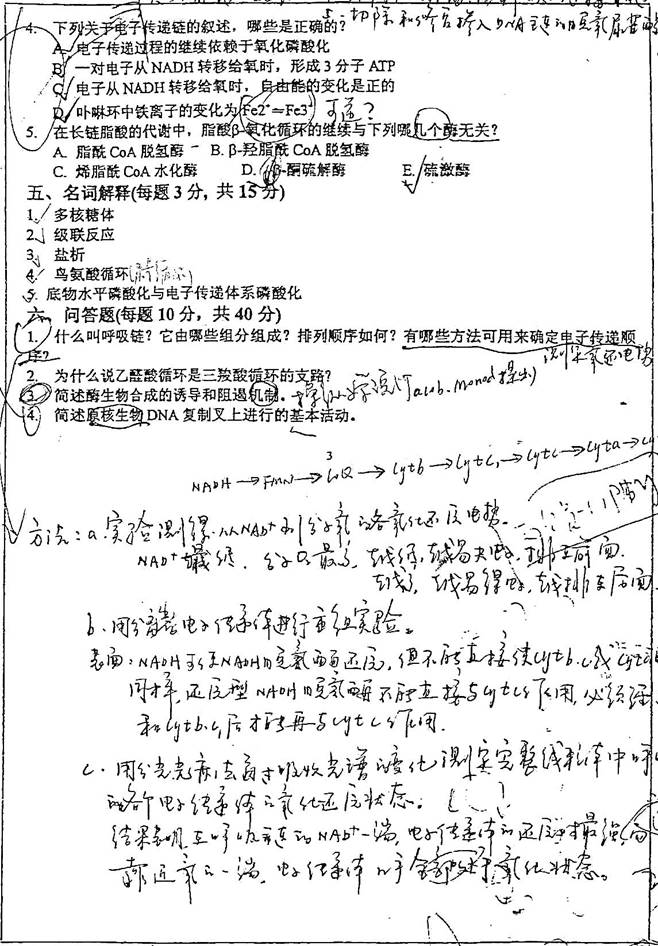 切除和修合掺入DNA
4. 下列关于电子传递链的叙述，哪些是正确的?
A. 电子传递过程的继续依赖于氧化磷酸化
B. 一对电子从 NADH 转移给氧时，形成 3 分子 ATP
C. 电子从 NADH 转移给氧时，自由能的变化是正的
D. 卟啉环中铁离子的变化为 Fe2+=Fe3+ 可逆?
5. 在长链脂酸的代谢中，脂酸β-氧化循环的继续与下列哪几个酶无关?
A. 脂酰 CoA 脱氢酶 B. β-羟脂酰 CoA 脱氢酶
C. 烯脂酰 CoA 水化酶 D. β-酮硫解酶 E. 硫激酶
五、名词解释(每题 3 分, 共 15 分)
1. 多核糖体
2. 级联反应
3. 盐析
4. 鸟氨酸循环
5. 底物水平磷酸化与电子传递体系磷酸化
六、 问答题(每题 10 分，共 40 分)
1. 什么叫呼吸链? 它由哪些组分组成? 排列顺序如何? 有哪些方法可用来确定电子传递顺
序? 测定氧还电势
2. 为什么说乙醛酸循环是三羧酸循环的支路?
3. 简述酶生物合成的诱导和阻遏机制。操纵子学说(Jacob. Monod 提出)
4. 简述原核生物 DNA 复制叉上进行的基本活动。
3
NADH → FMN → CoQ → Cytb → Cytc₁ → Cytc → Cyta →
方法: a. 实验测得从NAD+到分子氧的各氧化还原电势。
NAD+最低，分子O最高，越低，越易失电子，排在前面.
越高，越易得电子，越排在后面
b. 用分离电子传递体进行重组实验。
表面: NADH可使NADH脱氢酶还原，但不能直接使Cytb.c₁或Cytc
同样，还原型NADH脱氢酶不能直接与Cytc作用，必须
和Cytb.c₁后才能再与Cytc作用.
c. 用分光光度法离吸收光谱变化测定完整线粒体中呼
的各个电子传递体的氧化还原状态。
结果表明，在呼吸链的NAD+一端，电子传递体的还原最强，而
靠近氧的一端，电子传递体几乎全部处于氧化状态。